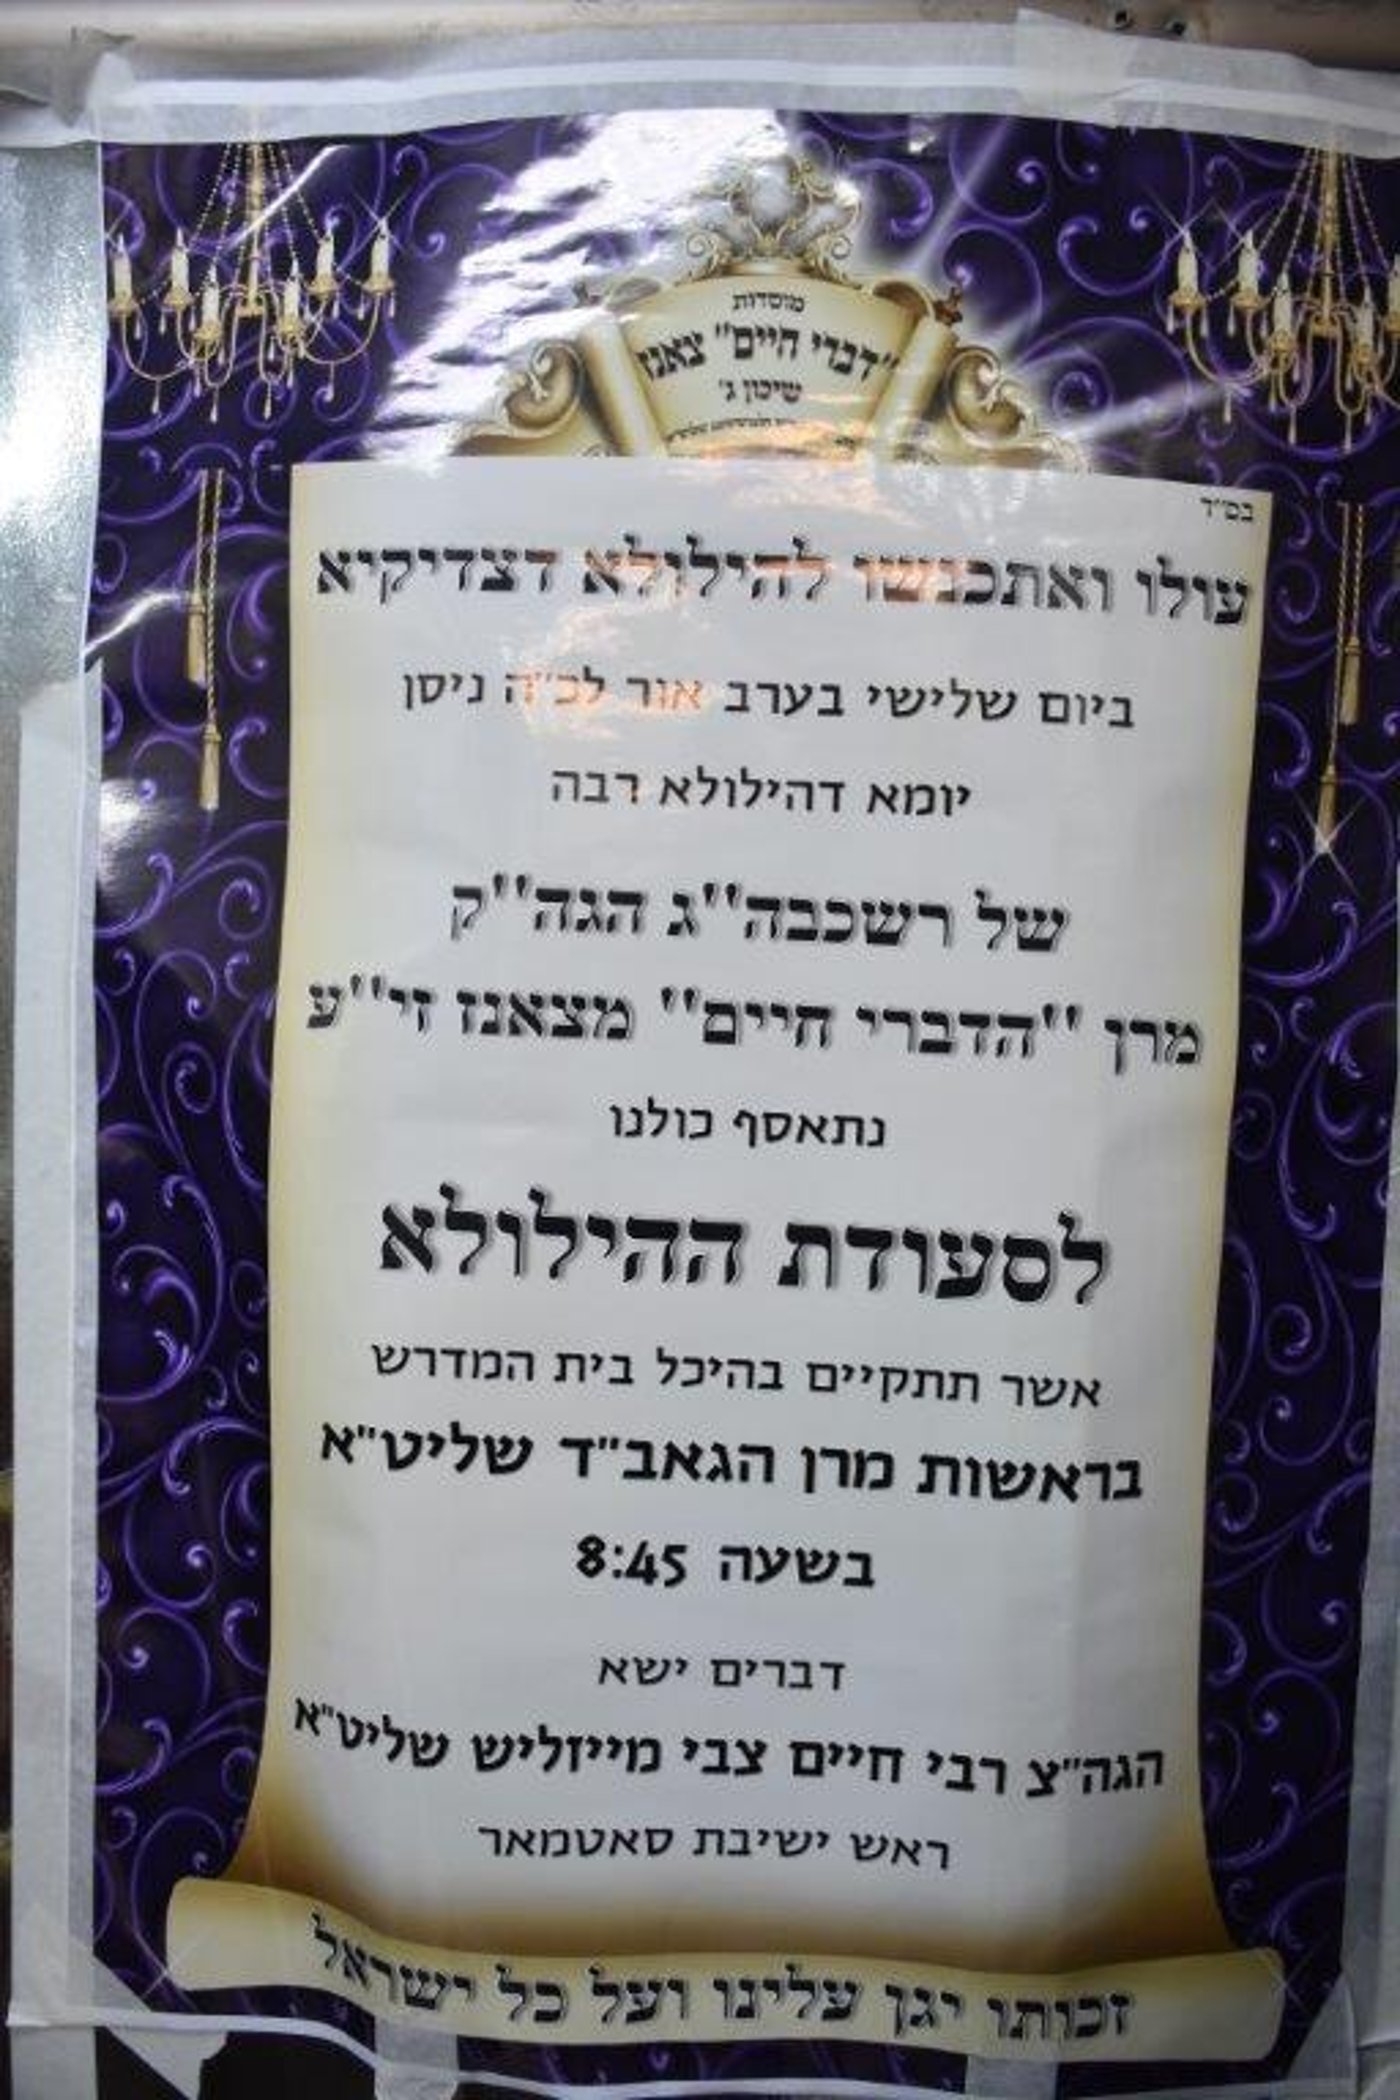 מוסדות
"דברי חיים" צאנז
שיכון ג'
בס"ד
עולו ואתכנשו להילולא דצדיקיא
ביום שלישי בערב אור לכ"ה ניסן
יומא דהילולא רבה
של רשכבה"ג הגה"ק
מרן "הדברי חיים" מצאנז זי"ע
נתאסף כולנו
לסעודת ההילולא
אשר תתקיים בהיכל בית המדרש
בראשות מרן הגאב"ד שליט"א
בשעה 8:45
דברים ישא
הגה"צ רבי חיים צבי מייזליש שליט"א
ראש ישיבת סאטמאר
זכותו יגן עלינו ועל כל ישראל